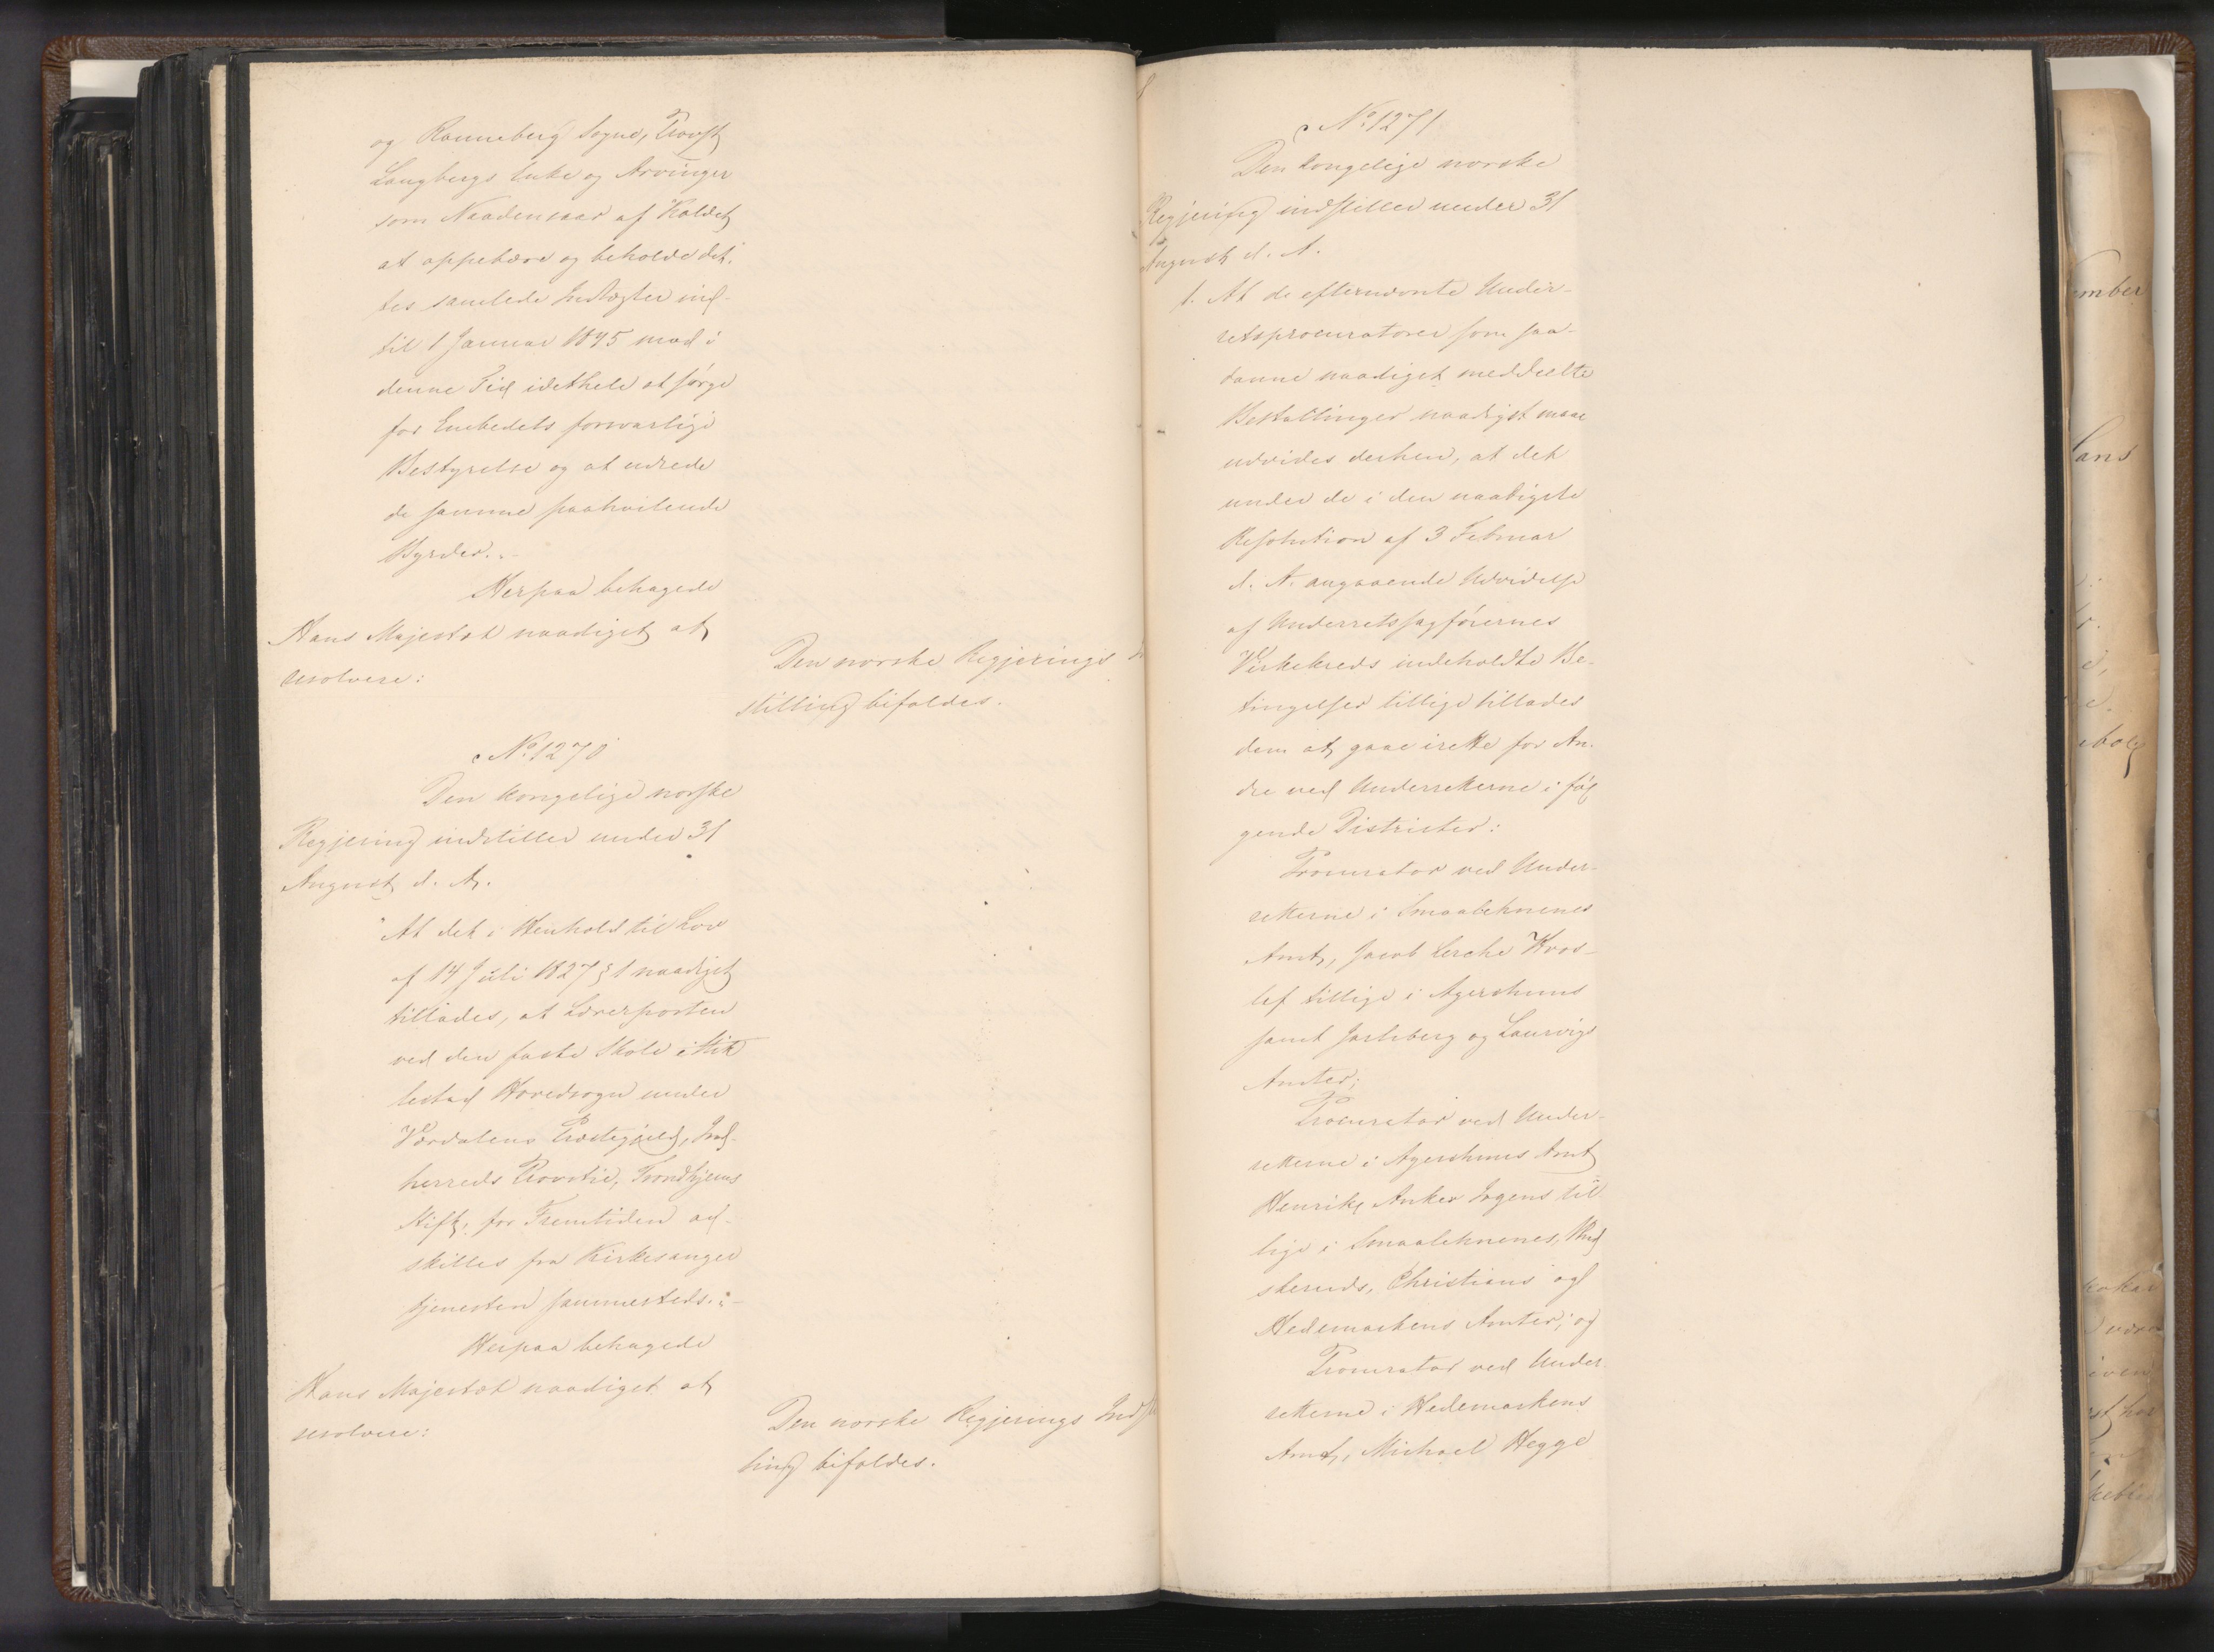 og Ranneberg Sogne, Provst
Langbergs Enke og Arvinger
som Naadensaar af Kaldet
at oppebære og beholde det-
tes samlede Indtægter ind-
til 1 Januar 1845 mod i
denne Tid idethele at sørge
for Embedets forsvarlige
Bestyrelse og at udrede
de samme paahvilende
Byrder.
Herpaa behagede
Hans Majestæt naadigst at
resolvere:
Den norske Regjerings
stilling bifaldes.
No 1270
Den kongelige norske
Regjering indstiller under 31
August d. A.
At det i Henhold til Lov
af 14 Juli 1827 § 1 naadigst
tillades, at Lærerposten
ved den faste Skole i Stik-
lestad Hovedsogn under
Værdalens Præstegjeld, Ind-
herreds Provsti, Trondhjems
Stift, for Fremtiden ad-
skilles fra Kirkesanger
tjenesten sammesteds.
Herpaa behagede
Hans Majestæt naadigst at
resolvere:
Den norske Regjerings Indstil
ling bifaldes.
No 1271
Den kongelige norske
Regjering indstiller under 31
August d. A.
1. At de efternævnte Under-
retsprocuratorer som saa-
danne naadigst meddeelte
Bestallinger naadigst maae
udvides derhen, at det
under de i den naadigste
Resolution af 3 Februar
d. A. angaaende Udvidelse
af Underretssagførernes
Virkekreds indeholdte Be-
tingelser tillige tillades
dem at gaae irette for An-
dre ved Underretterne i føl
gende Districter:
Procurator ved Under-
retterne i Smaalehnenes
Amt, Jacob Lerche
tillige i Agershuus
samt Jarlsberg og Laurvigs
Amter;
Procurator ved Under-
retterne i Agershuus Amt
Henrik Anker Irgens til
lige i Smaalehnenes, Bud
skeruds, Christians og
Hedemarkens Amter; og
Procurator ved Under
retterne i Hedemarkens
Amt, Michael Hegge